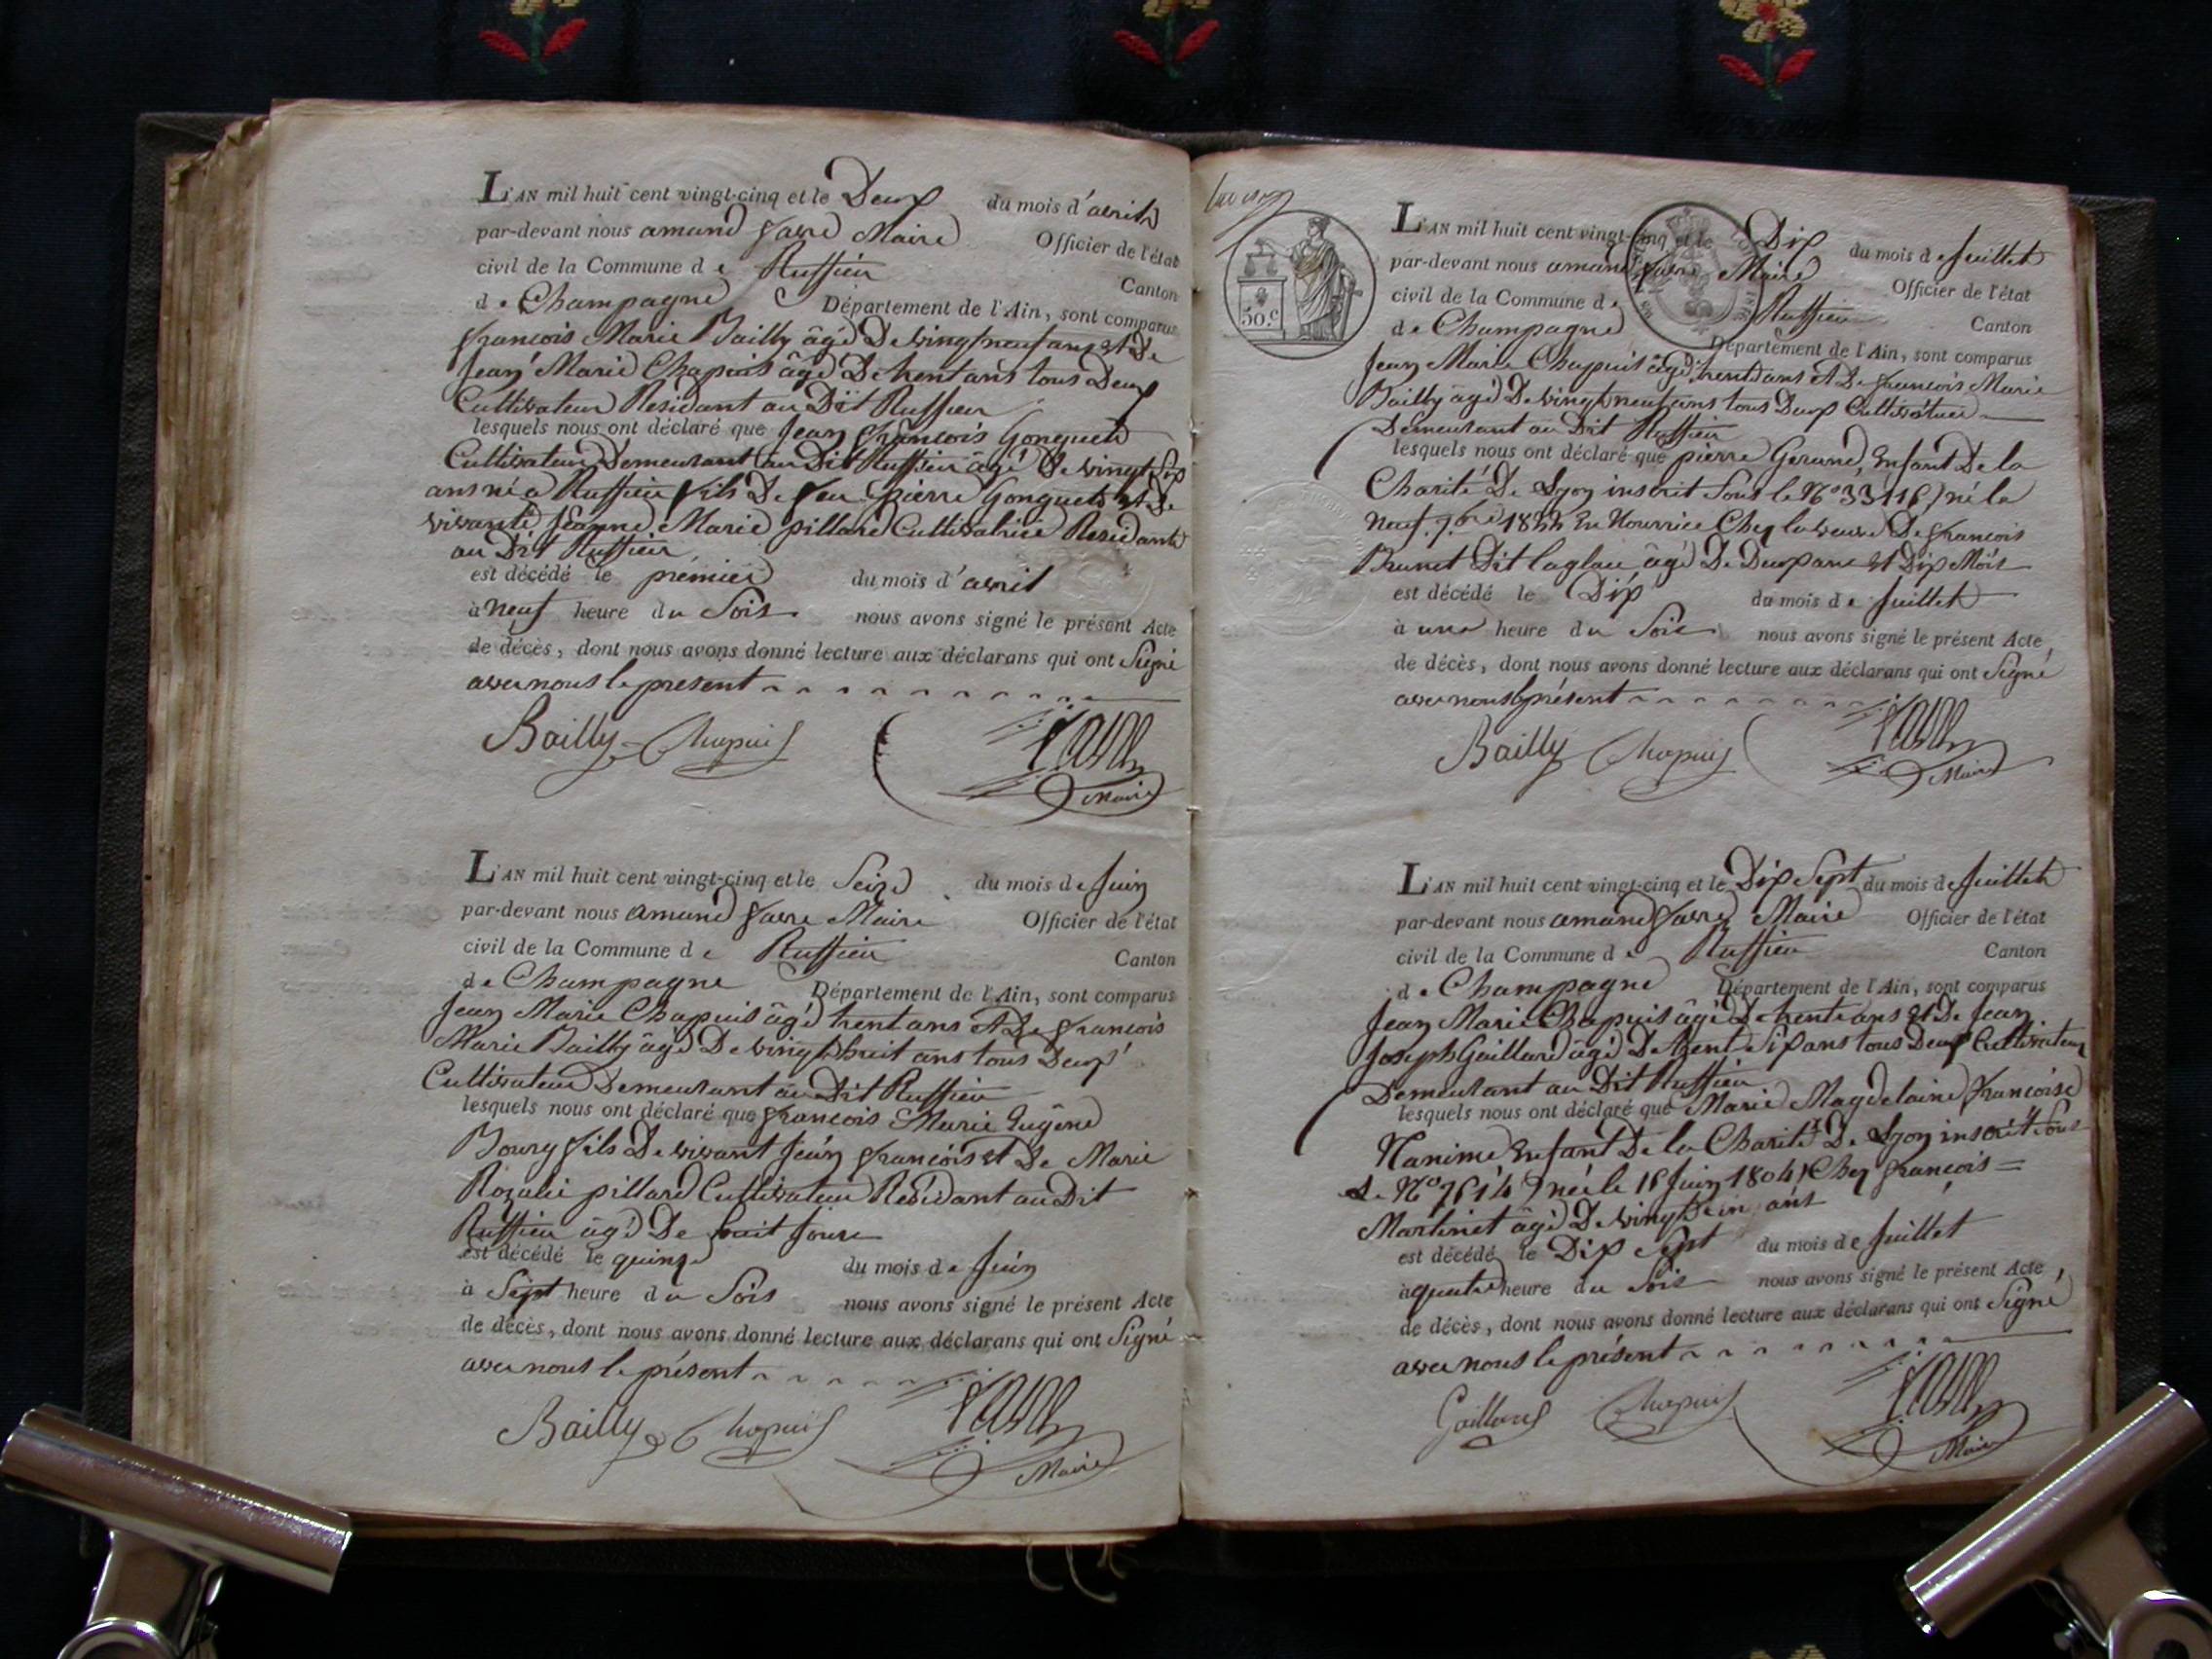 L'AN mil huit cent vingt-cinq et le Deux du mois d'avril
par-devant nous amand favre Maire Officier de l'état
civil de la Commune de Ruffieu Canton
de Champagne Département de l'Ain, sont comparus
francois Marie Bailly âgé De vingt neuf ans et De
Jean Marie Chapuis âgé De trent ans tous Deux
Cultivateur Residant au Dit Ruffieu
lesquels nous ont déclaré que Jean francois Gonguet
Cultivateur Demeurant au Dit Ruffieu âgé De vingt Six
ans né a Ruffieu fils De feu pierre Gonguet et De
vivante Jeanne Marie pillard Cultivatrice Residante
au Dit Ruffieu
est décédé le premier du mois d'avril
à neuf heure du Soir nous avons signé le présent Acte
de décès, dont nous avons donné lecture aux déclarans qui ont Signé
avec nous le present
Bailly Chapuis
Maire
L'AN mil huit cent vingt-cinq et le Seize du mois de Juin
par-devant nous amand favre Maire Officier de l'état
civil de la Commune de Ruffieu Canton
de Champagne Département de l'Ain, sont comparus
Jean Marie Chapuis âgé trent ans et De francois
Marie Bailly âgé De vingt huit ans tous Deux
Cultivateur Demeurant au Dit Ruffieu
lesquels nous ont déclaré que francois Marie Eugêne
Boury fils De vivant Jean francois et De Marie
Rozalie pillard Cultivateur Residant au Dit
Ruffieu âgé De huit Jours
est décédé le quinze du mois de Juin
à Sept heure du Soir nous avons signé le présent Acte
de décès, dont nous avons donné lecture aux déclarans qui ont Signé
avec nous le présent
Bailly Chapuis
Maire
50.c
L'AN mil huit cent vingt-cinq et le Dix du mois de Juillet
par-devant nous amand favre Maire Officier de l'état
civil de la Commune de Ruffieu Canton
de Champagne Département de l'Ain, sont comparus
Jean Marie Chapuis âgé trent ans et De francois Marie
Bailly âgé De vingt neuf ans tous Deux Cultivateur
Demeurant au Dit Ruffieu
lesquels nous ont déclaré que pierre Gerand, Enfant De la
Charité De Lyon inscrit Sous le No 33116) né le
neuf 7bre 1822 En Nourrice Chez la veuve De francois
Brunet Dit laglau âgé De Deux ans et Dix Mois
est décédé le Dix du mois de Juillet
à une heure du Soir nous avons signé le présent Acte,
de décès, dont nous avons donné lecture aux déclarans qui ont Signé
avec nous le présent
Bailly Chapuis
Maire
L'AN mil huit cent vingt-cinq et le Dix Sept du mois de Juillet
par-devant nous amand favre Maire Officier de l'état
civil de la Commune de Ruffieu Canton
de Champagne Département de l'Ain, sont comparus
Jean Marie Chapuis âgé De trente ans et De Jean
Joseph Gaillard âgé De trent Six ans tous Deux Cultivateur
Demeurant au Dit Ruffieu
lesquels nous ont déclaré que Marie Magdelaine francoise
Nanime Enfant De la Charité De Lyon inscrit Sous
le No 7614) née le 16 Juin 1804) Chez francois =
Martinet âgé De vingt ans
est décédé le Dix Sept du mois de Juillet
à quatre heure du Soir nous avons signé le présent Acte,
de décès, dont nous avons donné lecture aux déclarans qui ont Signé
avec nous le présent
Gaillard Chapuis
Maire